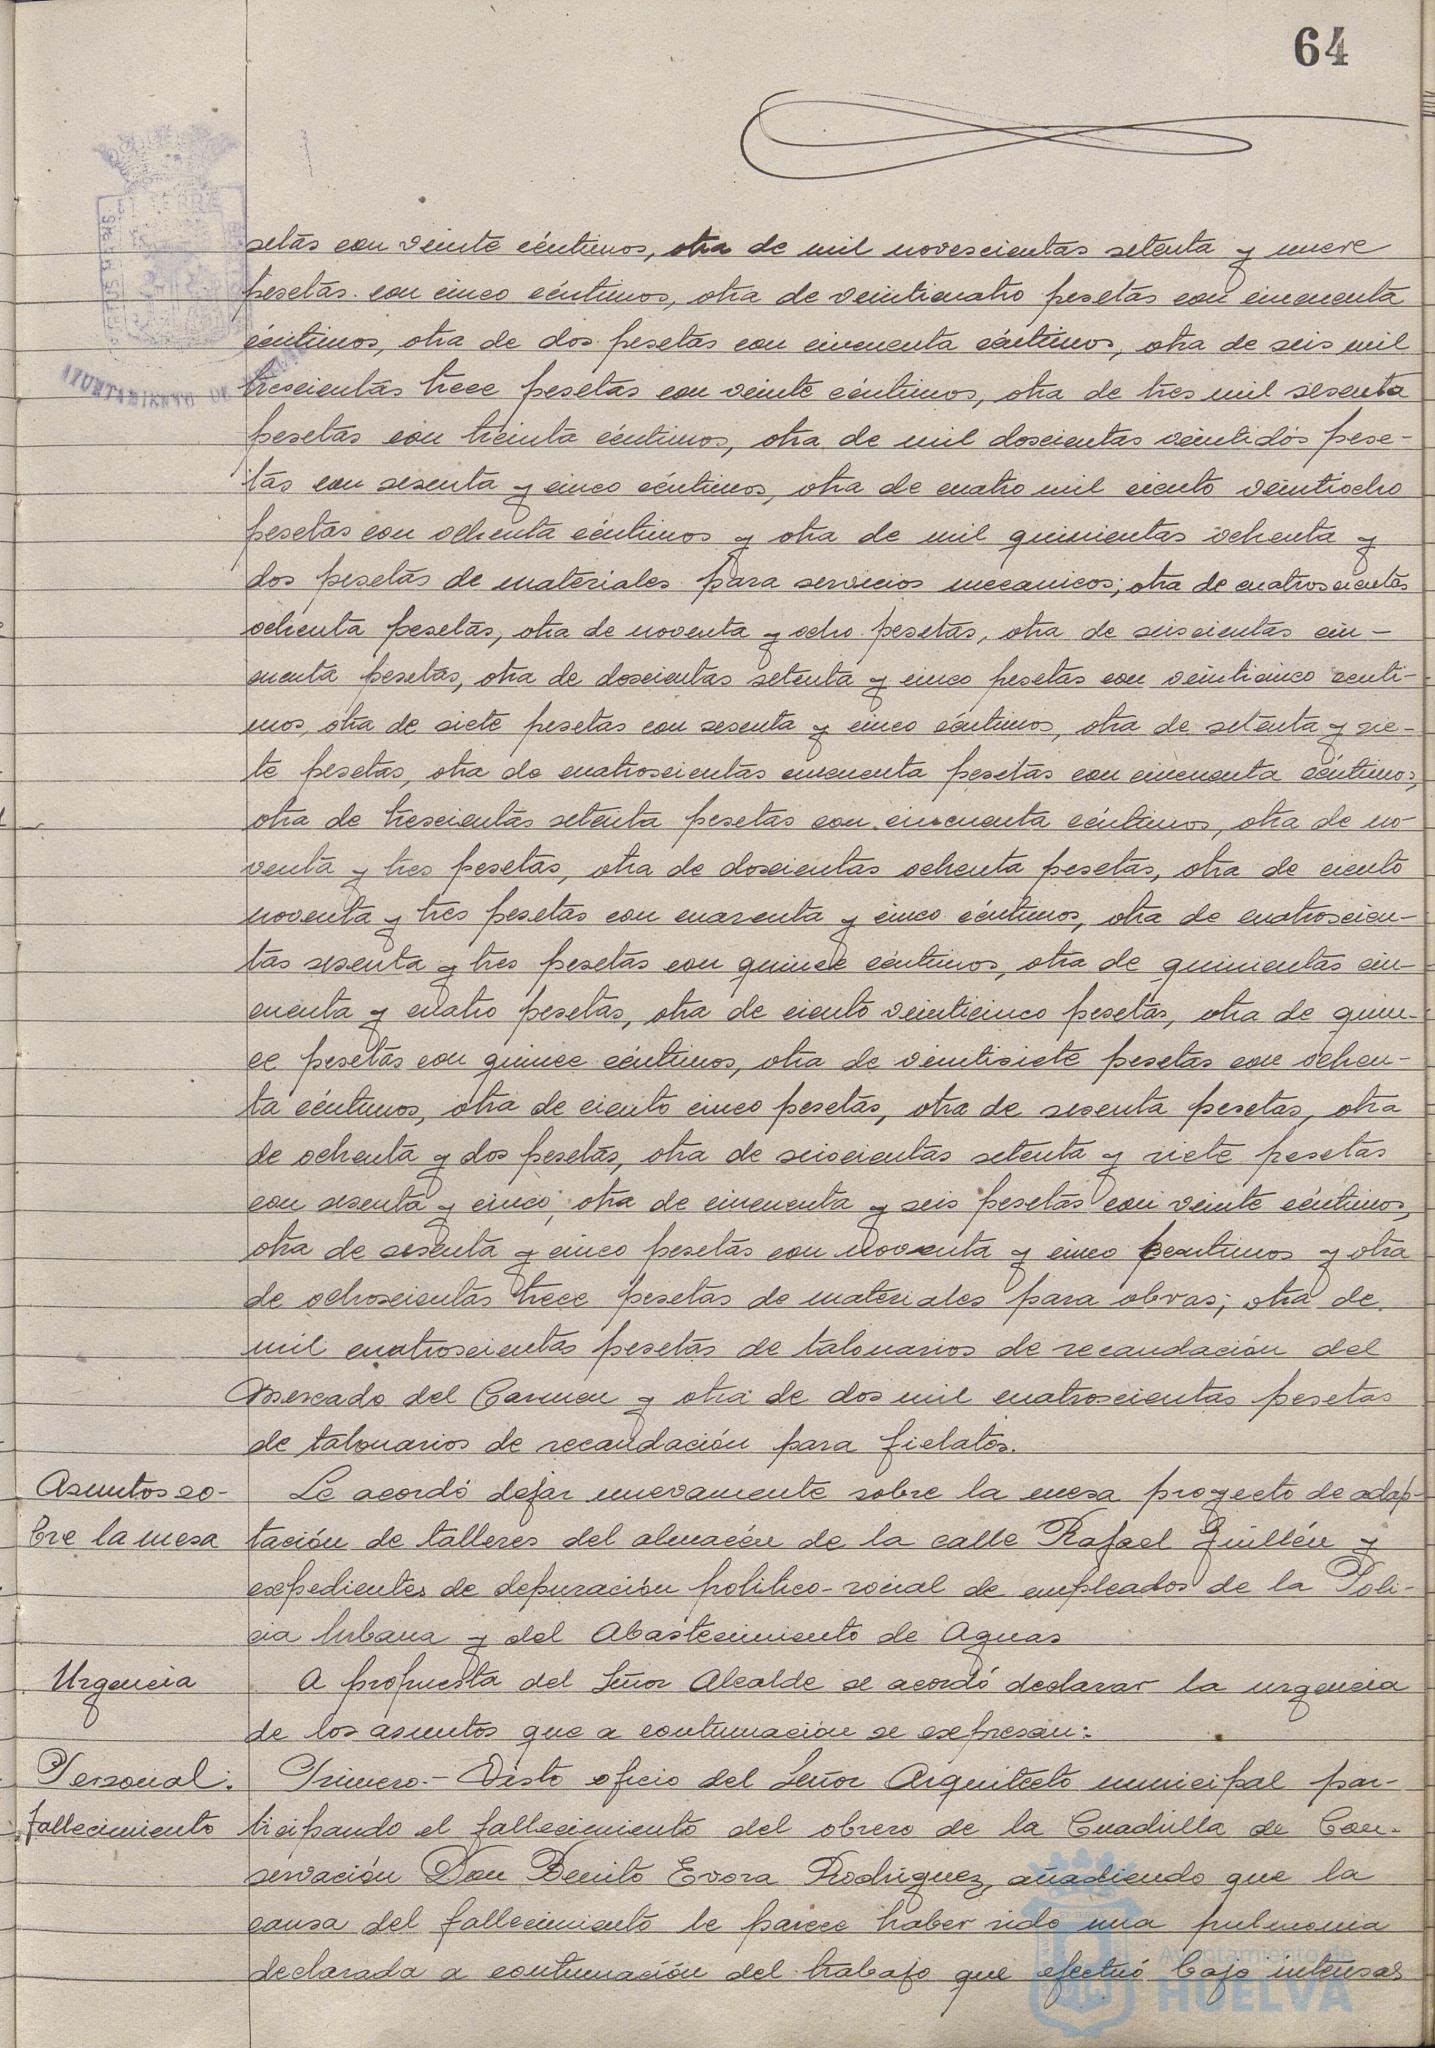 64
setas con veinte céntimos, otra de mil novescientas setenta y nueve
pesetas con cinco céntimos, otra de veinticuatro pesetas con cincuenta
céntimos, otra de dos pesetas con cincuenta céntimos, otra de seis mil
trescientas trece pesetas con veinte céntimos, otra de tres mil sesenta
pesetas con treinta céntimos, otra de mil doscientas veintidós pese-
tas con sesenta y cinco céntimos, otra de cuatro mil ciento veintiocho
pesetas con ochenta céntimos y otra de mil quinientas ochenta y
dos pesetas de materiales para servicios mecanicos; otra de cuatroscientas
ochenta pesetas, otra de noventa y ocho pesetas, otra de seiscientas cin-
cuenta pesetas, otra de doscientas setenta y cinco pesetas con veinticinco centi-
mos, otra de siete pesetas con sesenta y cinco céntimos, otra de setenta y sie-
te pesetas, otra de cuatroscientas cincuenta pesetas con cincuenta céntimos,
otra de trescientas setenta pesetas con cincuenta céntimos, otra de no-
venta y tres pesetas, otra de doscientas ochenta pesetas, otra de ciento
noventa y tres pesetas con cuarenta y cinco céntimos, otra de cuatroscien-
tas sesenta y tres pesetas con quince céntimos, otra de quinientas cin-
cuenta y cuatro pesetas, otra de ciento veinticinco pesetas, otra de quin-
ce pesetas con quince céntimos, otra de veintisiete pesetas con ochen-
ta céntimos, otra de ciento cinco pesetas, otra de sesenta pesetas, otra
de ochenta y dos pesetas, otra de seiscientas setenta y siete pesetas
con sesenta y cinco, otra de cincuenta y seis pesetas con veinte céntimos,
otra de sesenta y cinco pesetas con noventa y cinco centimos y otra
de ochoscientas trece pesetas de materiales para obras; otra de
mil cuatroscientas pesetas de talonarios de recaudación del
Mercado del Carmen y otra de dos mil cuatroscientas pesetas
de talonarios de recaudación para fielatos.
Asuntos so-
bre la mesa
Se acordó dejar nuevamente sobre la mesa proyecto de adap-
tación de talleres del almacén de la calle Rafael Guillén y
expedientes de depuración politico-social de empleados de la Poli-
cia Urbana y del Abastecimiento de Aguas
Urgencia
A propuesta del Señor Alcalde se acordó declarar la urgencia
de los asuntos que a continuación se expresan:
Personal:
fallecimiento
Primero.- Visto oficio del Señor Arquitecto municipal par-
ticipando el fallecimiento del obrero de la Cuadrilla de Con-
servación Don Benito Evora Rodriguez, añadiendo que la
causa del fallecimiento le parece haber sido una pulmonia
declarada a continuación del trabajo que efectuó bajo intensas
AYUNTAMIENTO DE HUELVA
Ayuntamiento de
HUELVA